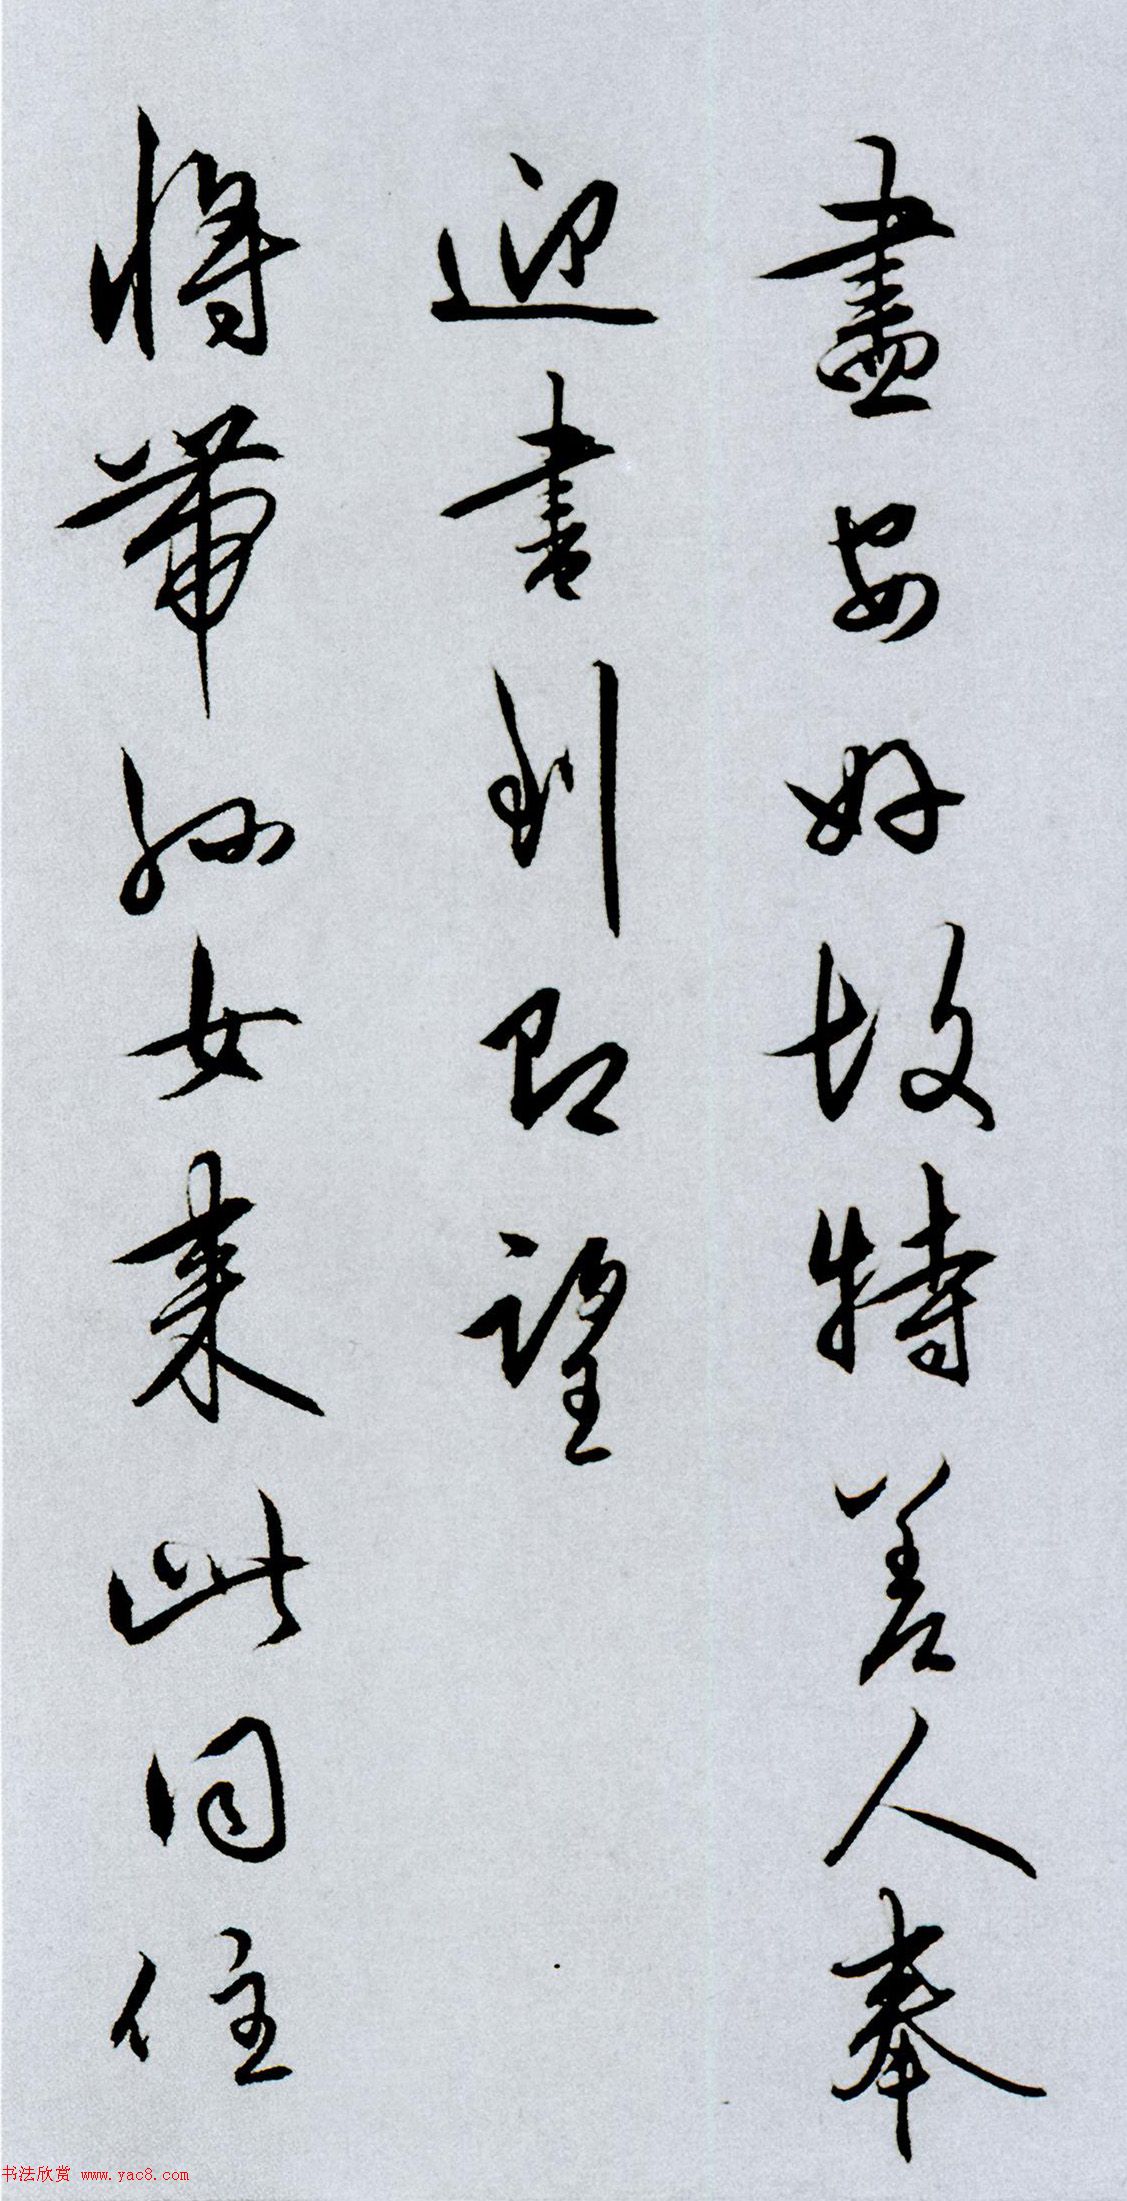 盡安好故特差人奉
迎書到即望
將帶孫女來此同住
书法欣赏 www.yac8.com